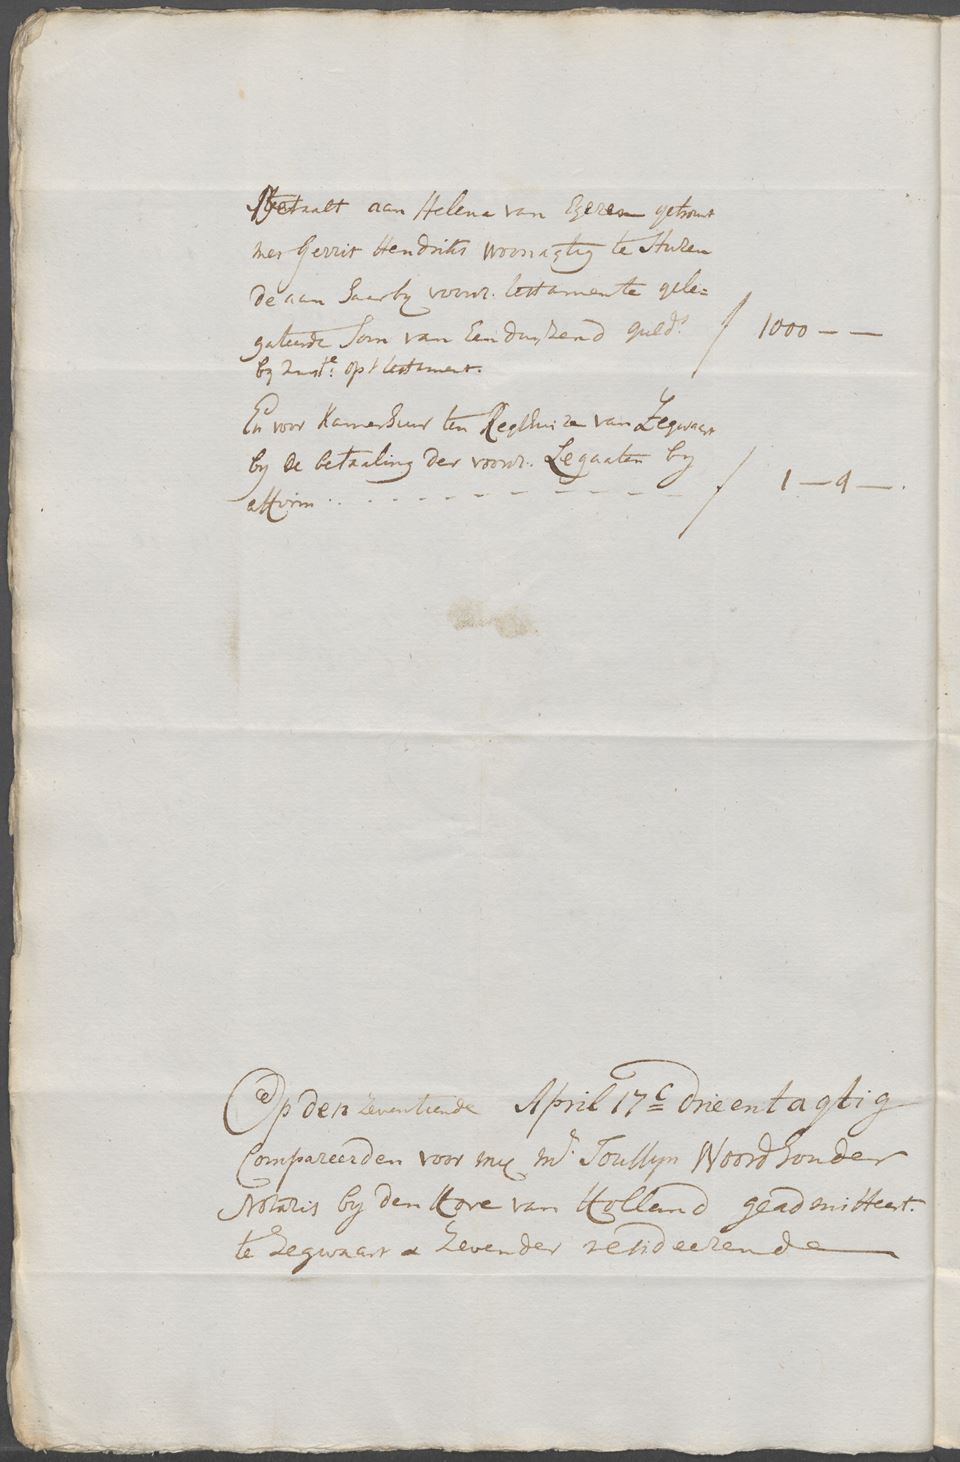 Betaalt aan Helena van Ezeren getrouwt
met Gerrit Hendriks woonagtig te
de aan haar by voorz. testamente gele=
gateerde Som van Een duyzend guld.s / 1000 — —
by quit.e op 't testament.
En voor Kamerhuur ten Regthuize van Zegwaart
by de betaaling der voorz. Legaaten by
/ 1 — 9 — .
Op den zeventiende April 17c drieentagtig
Compareerden voor my m.r Joullyn Woordhouder
Notaris by den Hove van Holland geadmitteert.
te Zegwaart & Zevender resideerende